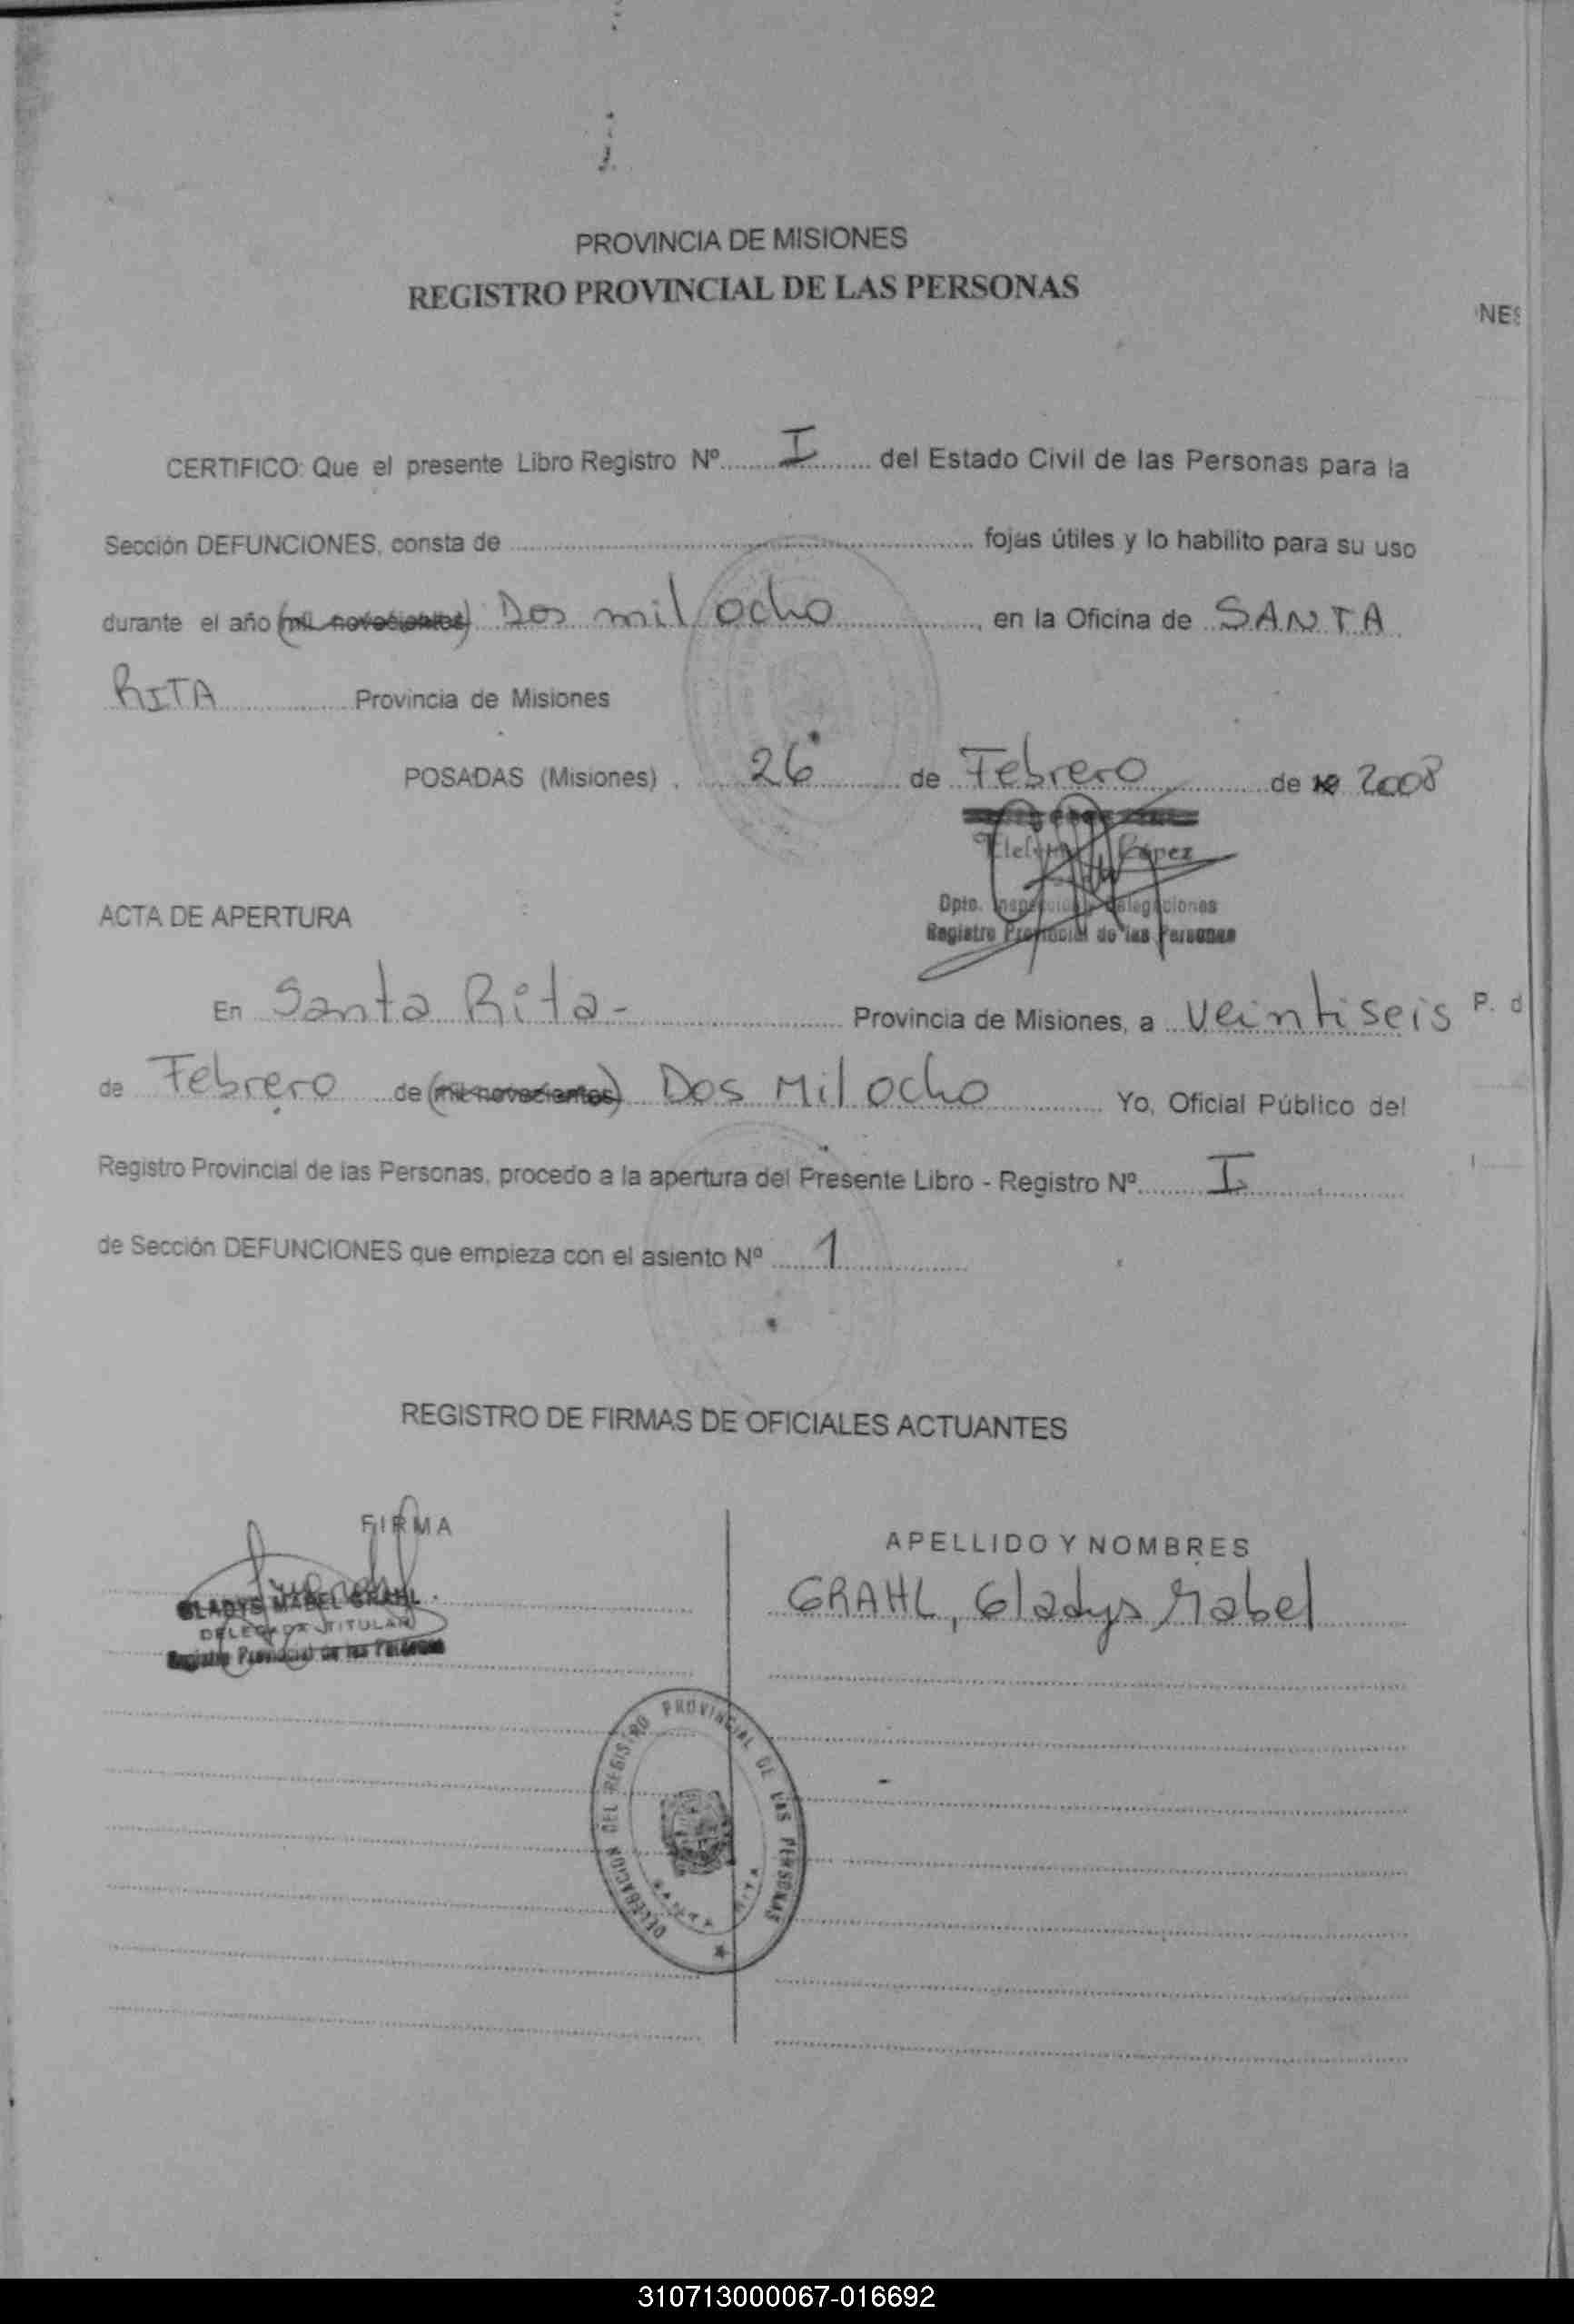 PROVINCIA DE MISIONES
REGISTRO PROVINCIAL DE LAS PERSONAS
NES
CERTIFICO: Que el presente Libro Registro Nº I del Estado Civil de las Personas para la
Sección DEFUNCIONES, consta de fojas útiles y lo habilito para su uso
durante el año (mil novecientos) Dos mil ocho, en la Oficina de SANTA
RITA Provincia de Misiones
POSADAS (Misiones), 26 de Febrero de 2008
López
Dpto. Delegaciones
Registro Provincial de las Personas
ACTA DE APERTURA
En Santa Rita- Provincia de Misiones, a veintiseis
P. d
de Febrero de (mil novecientos) Dos Mil ocho Yo, Oficial Público del
Registro Provincial de las Personas, procedo a la apertura del Presente Libro - Registro Nº I
de Sección DEFUNCIONES que empieza con el asiento Nº 1
REGISTRO DE FIRMAS DE OFICIALES ACTUANTES
FIRMA
APELLIDO Y NOMBRES
GLADYS MABEL GRAHL
DELEGADA TITULAR
Registro Provincial de las Personas
GRAHL, Gladys Mabel
DELEGACION DEL REGISTRO PROVINCIAL DE LAS PERSONAS
SANTA RITA
310713000067-016692